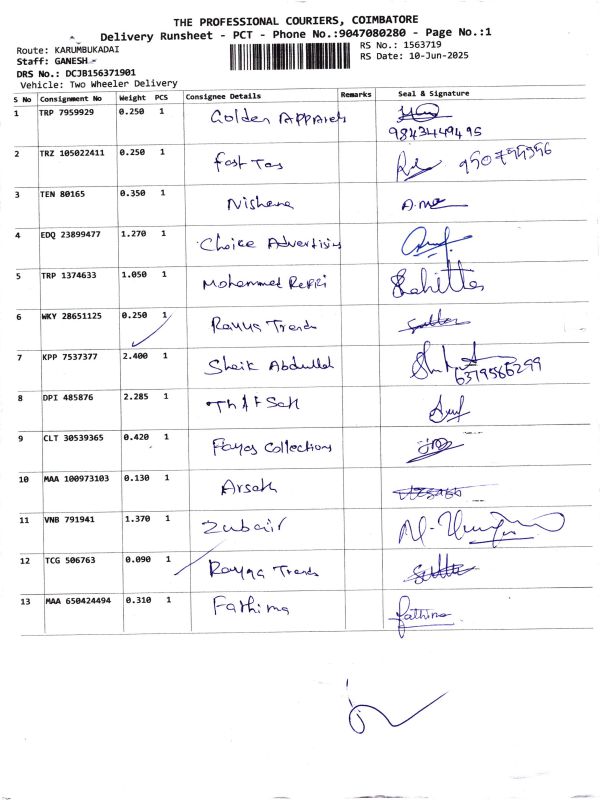 THE PROFESSIONAL COURIERS, COIMBATORE
Delivery Runsheet - PCT - Phone No.:9047080280 - Page No.:1
Route: KARUMBUKADAI RS No.: 1563719
Staff: GANESH RS Date: 10-Jun-2025
DRS No.: DCJB156371901
Vehicle: Two Wheeler Delivery
S No Consignment No Weight PCS Consignee Details Remarks Seal & Signature
1 TRP 7959929 0.250 1 Golden APPArels
9843449495
2 TRZ 105022411 0.250 1 fast Tag
3 TEN 80165 0.350 1 Nishana
4 EDQ 23899477 1.270 1 Choice Advertising
5 TRP 1374633 1.050 1 Mohammed Refri
6 WKY 28651125 0.250 1 Rayya Trends
7 KPP 7537377 2.400 1 Sheik Abdullah
6379566299
8 DPI 485876 2.285 1
9 CLT 30539365 0.420 1 Fayas Collections
10 MAA 100973103 0.130 1 Arsath
11 VNB 791941 1.370 1 Zubair
12 TCG 506763 0.090 1 Rayya Trends
13 MAA 650424494 0.310 1 Fathima fathima